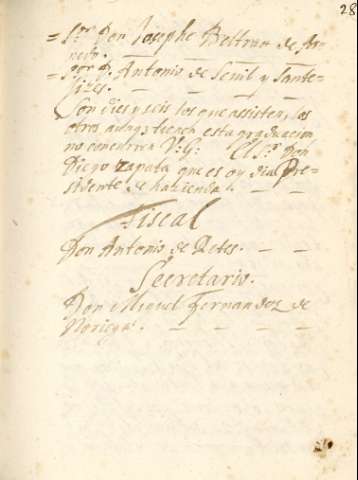 28
= S.or Don Josephe Beltran de Ar-
nedo.
= S.or D. Antonio de Semil y Sante-
lizes.
Son dies y seis los que assisten, los
otros aunq tienen esta graduacion
no concurren V:G: El S.r Don
Diego Zapata que es oy dia Pre-
sidente de hazienda.
Fiscal
Don Antonio de Retes.
Secretario.
Don Miguel Fernandez de
Noriega.